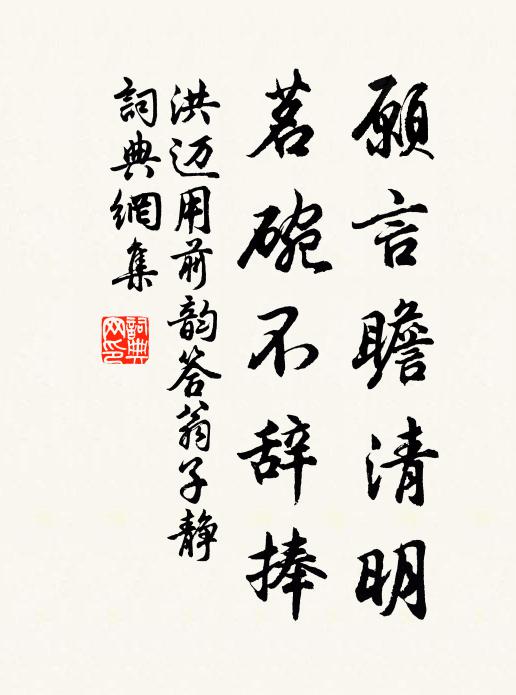 願言瞻清明
茗碗不辞捧
洪迈用前韵答翁子静
詞典網集
詞典网印